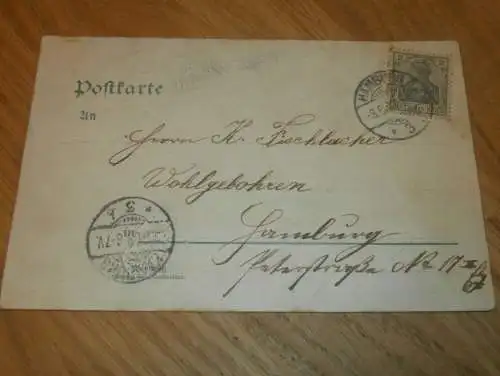 Postkarte
An
Herrn K. Fischlacher
Wohlgebohren
Hamburg
Peterstraße No 17 II